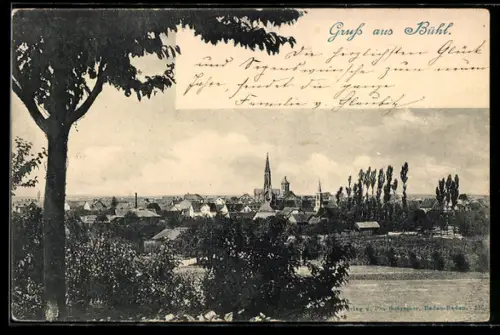 Gruß aus Bühl.
Die herzlichsten Glück
und Segenswünsche zum neuen
Jahre sendet die ganze
Familie v.
Verlag v. Baden-Baden.